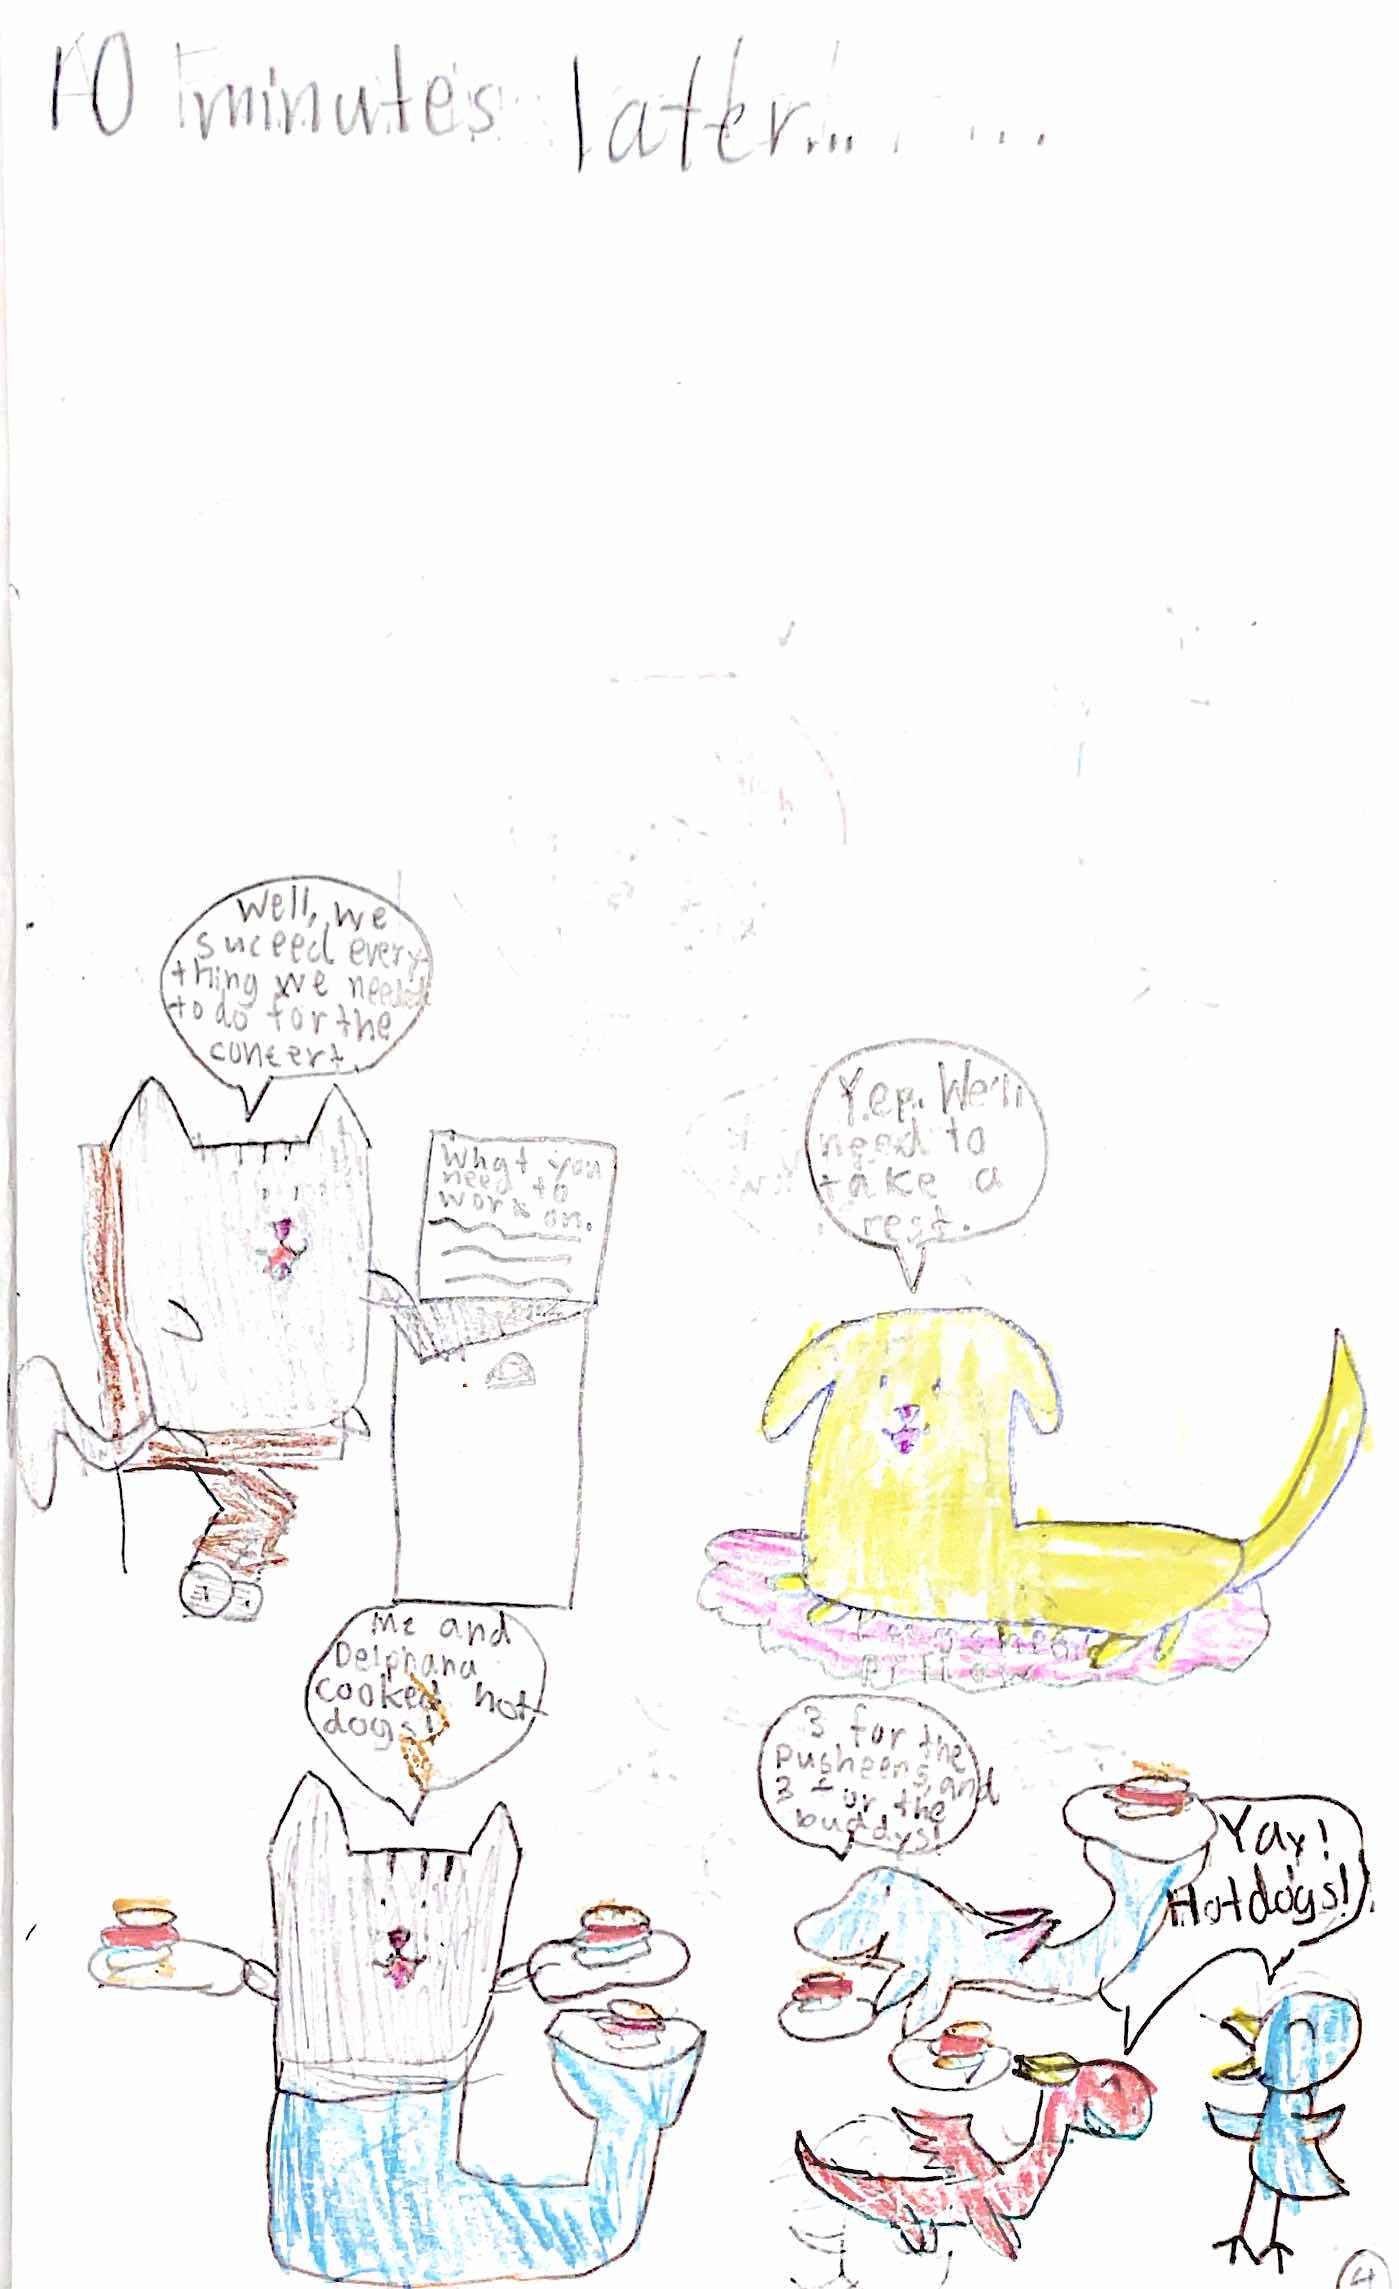 10 minutes later... . ...
Well, we
suceed every-
thing we need
to do for the
concert.
What you
need to
work on.
Yep. We'll
need to
take a
rest.
Me and
Delphana
cooked hot
dogs!
3 for the
pusheens, and
3 for the
buddys!
Yay!
Hotdogs!
4